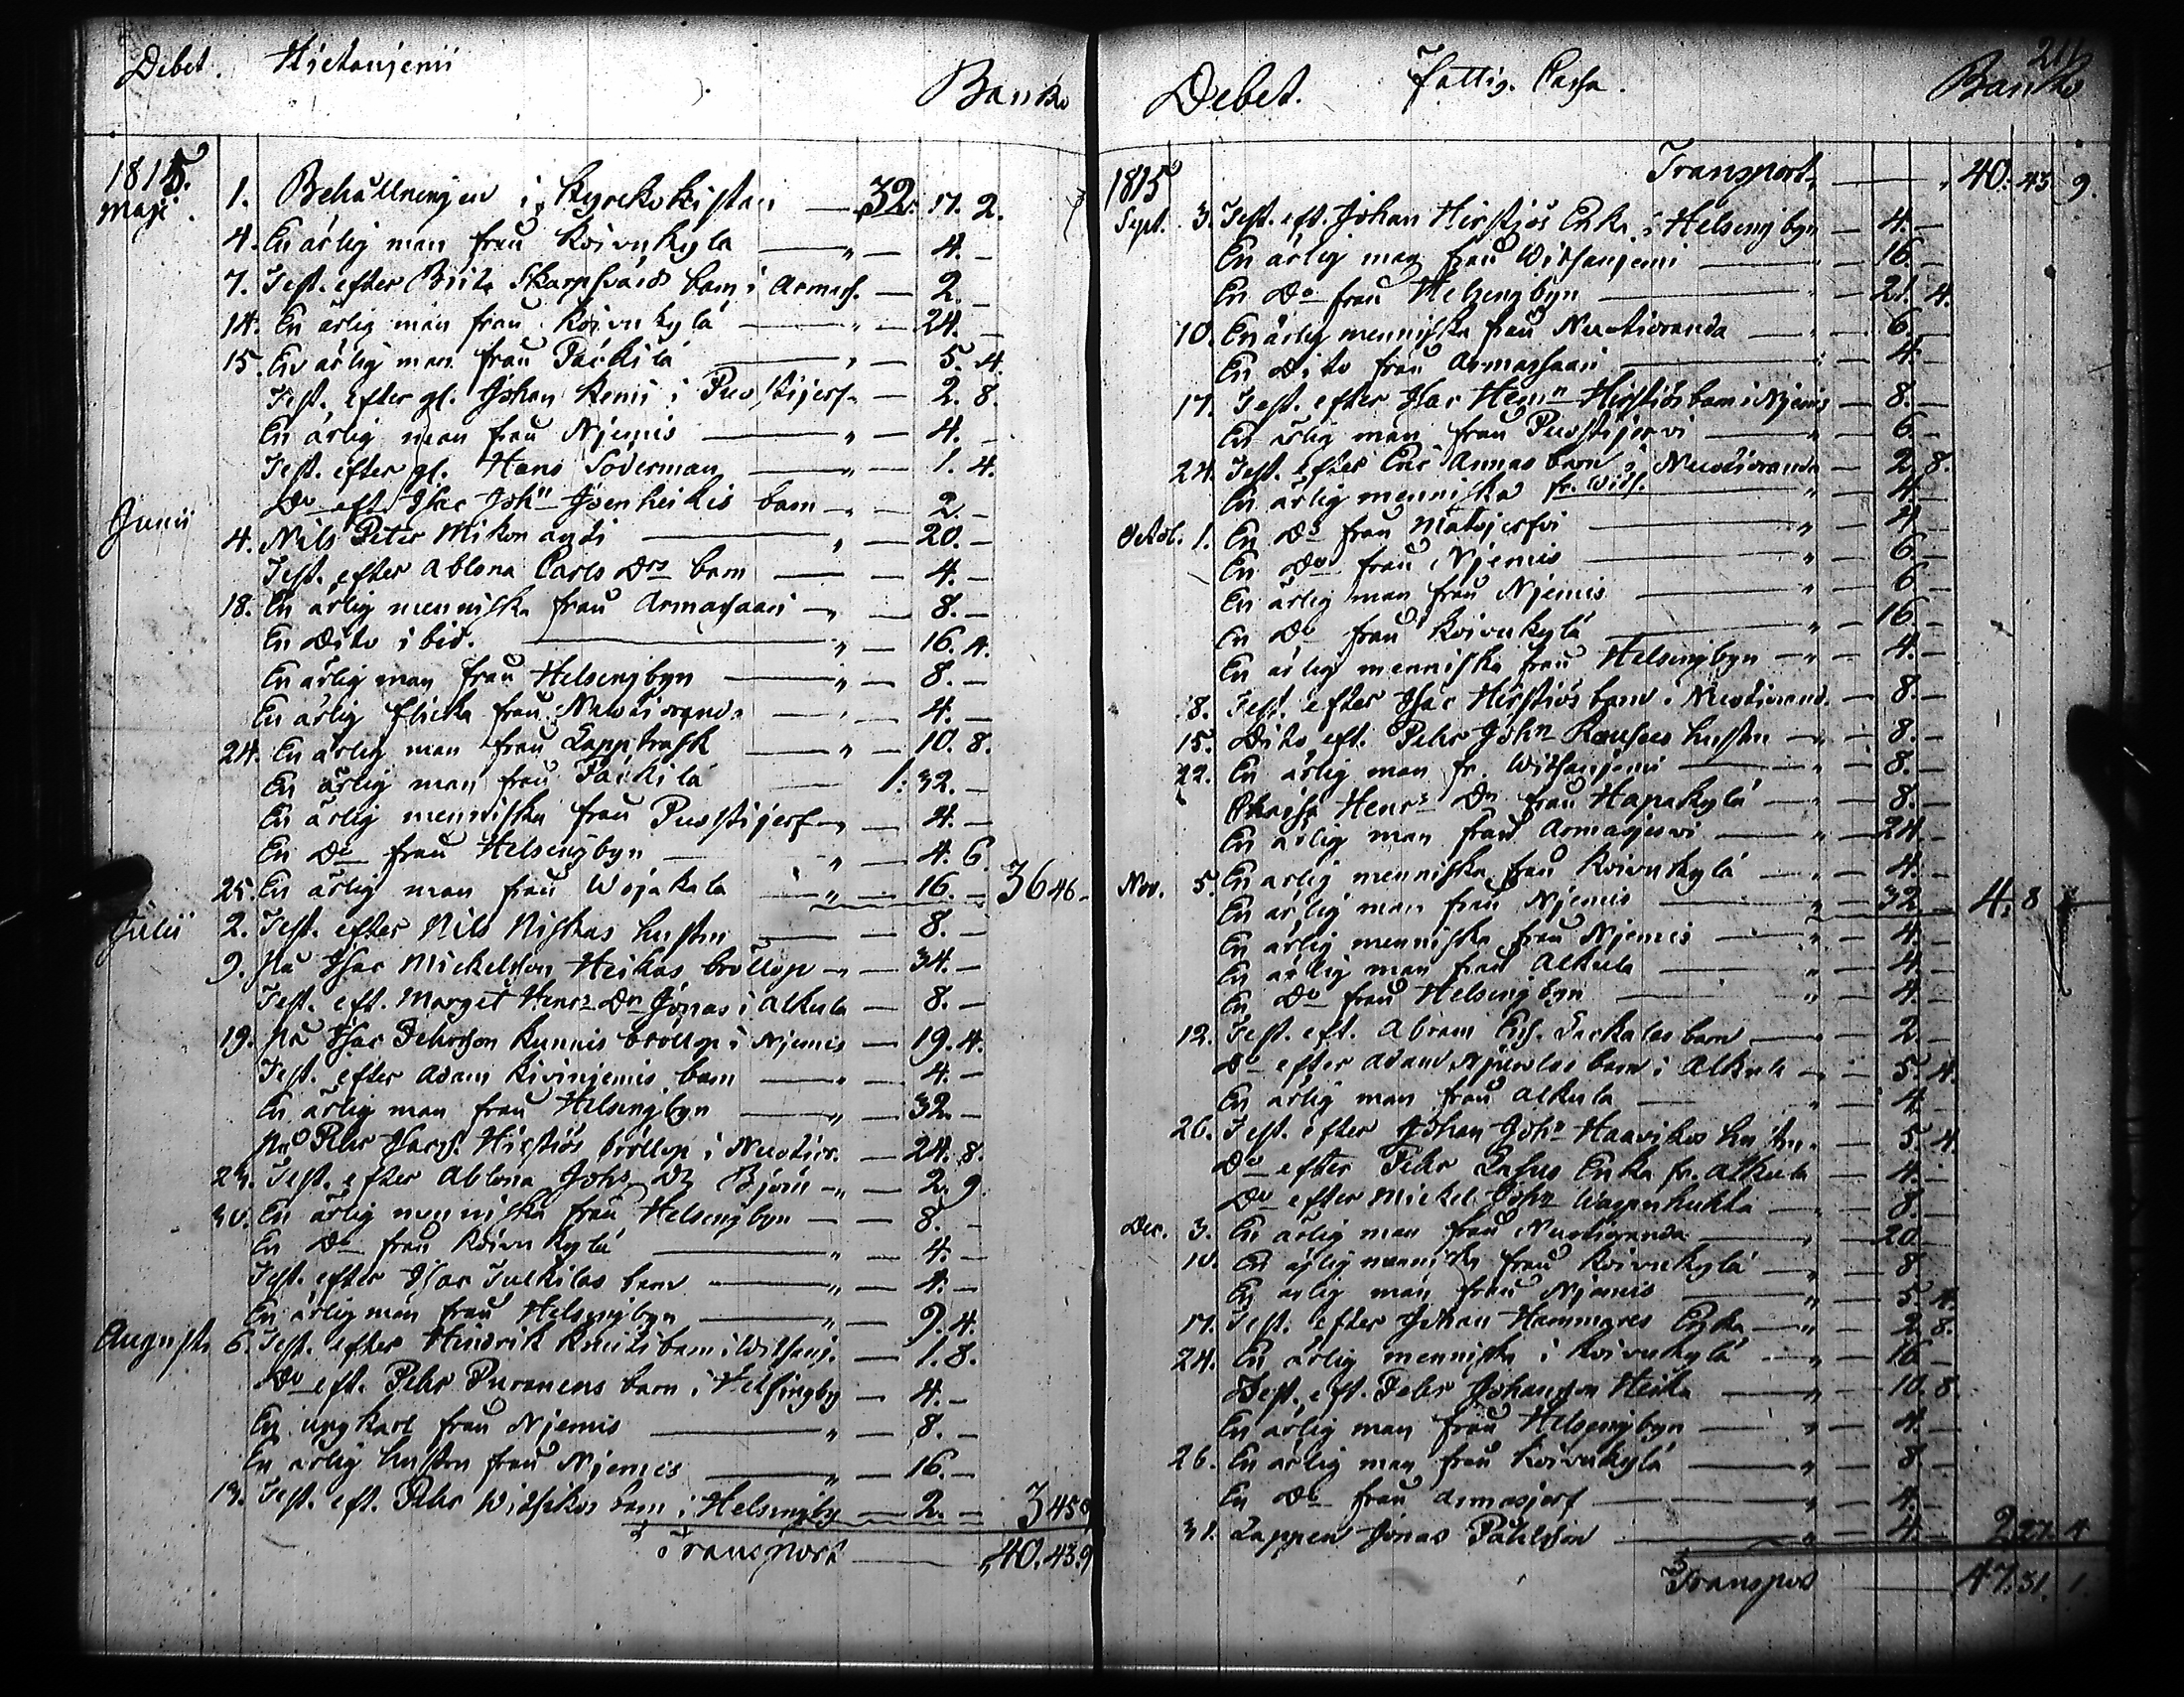 Debet. Hietaniemi Banko
1815.
Maji 1. Behållningen i Kyrckokistan — 32. 17. 2.
4. En ärlig man från Koivukylä — " — 4. —
7. Test. efter Brita Skarpsvärds barn i Armas. — 2. —
14. En ärlig man från Koivukylä — " — 24. —
15. En ärlig man från Päckilä — " — 5. 4.
Test. efter gl. Johan Kemi i Puostijerf. — 2. 8.
En ärlig man från Njemis — " — 4. —
Test. efter gl. Hans Söderman — " — 1. 4.
Do eft. Isac Johsn Isenheikis barn — " — 2. —
Junii 4. Nils Peter Mikon andi — " — 20. —
Test. efter Ablona Carls Drs barn — — 4. —
18. En ärlig menniska från Armassaari — " — 8. —
En Dito ibid. — " — 16. 4.
En ärlig man från Helsingbyn — " — 8. —
En ärlig flicka från Nuotioranda — " — 4. —
24. En ärlig man från Lappträsk — " — 10. 8.
En ärlig man från Päckilä — 1. 32. —
En ärlig menniska från Puostijerf — " — 4. —
En Do från Helsingbyn — " — 4. 6.
25. En ärlig man från Wojakala — " — 16. — 36 46 —
Julii 2. Test. efter Nils Niskas hustru — — 8. —
9. På Isac Mickelsson Heikas bröllop — " — 34. —
Test. eft. Marget Henrs Dr Jonas i Alkula — 8. —
19. På Isac Pehrsson Kunnis bröllop i Njemis — 19. 4.
Test. efter Adam Kiviniemis barn — " — 4. —
En ärlig man från Helsingbyn — " — 32. —
På Pehr Isacs. Hirstiös bröllop i Nuotior. — 24. 8.
23. Test. efter Ablona Johs Dr Björn — " — 2. 9
30. En ärlig menniska från Helsingbyn — — 8. —
En Do från Koivukylä — " — 4. —
Test. efter Isac Juckilas barn — " — 4. —
En ärlig man från Helsingbyn — " — 9. 4.
Augusti 6. Test. efter Hindrik Knuts barn i Witsanj. — 1. 8.
Do eft. Pehr Puranens barn i Helsingby — 4. —
En ung karl från Njemis — " — 8. —
En ärlig hustru från Njemis — " — 16. —
13. Test. eft. Pehr Widfikos barn i Helsingby — 2. — 3 45 9
Transport — 40. 43. 9
Debet. Fattig. Cassa. Banko
1815 Transport — 40. 43. 9.
Sept. 3. Test. eft. Johan Hirstiös Enka i Helsingbyn — 4. —
En ärlig man från Witsaniemi — 16. —
En Do från Helsingbyn — " — 21. 4.
10. En ärlig menniska från Nuotioranda — " — 6. —
En Dito från Armassaari — " — 4. —
17. Test. efter Isac Hensn Hirstiös barn i Njemis — 8. —
En ärlig man från Puostijervi — " — 6. —
24. Test. efter Eric Annas barn i Nuotioranda — 2. 8.
En ärlig menniska fr. Wits. — " — 4. —
Octob. 1. En Do från Matojerfvi — " — 4. —
En Do från Njemis — " — 6. —
En ärlig man från Njemis — " — 6 —
En Do från Koivukylä — " — 16. —
En ärlig menniska från Helsingbyn — " — 4. —
8. Test. efter Isac Hirstiös barn i Nuotiorand. — 8. —
15. Dito eft. Pehr Johsn hustru — " — 8. —
22. En ärlig man fr. Witsaniemi — " — 8. —
Henrs Dr från Hapakylä — " — 8. —
En ärlig man från Armasjervi — " — 24 —
Nov. 5. En ärlig menniska från Koivukylä — " — 4. —
En ärlig man från Njemis — " — 32 — 4. 8
En ärlig menniska från Njemis — " — 4. —
En ärlig man från Alkula — " — 4. —
En Do från Helsingbyn — " — 4 —
12. Test. eft. Abram Eris. barn — " — 2 —
Do efter Adam barn i Alkula — " — 5. 4.
En ärlig man från Alkula — " — 4 —
26. Test. efter Johan Johsn Haavikos hustru — 5. 4
Do efter Pehr Enka fr. Alkula — 4. —
Do efter Mickel Johsn — " — 8. —
Dec. 3. En ärlig man från Nuotioranda — " — 20 —
10. En ärlig menniska från Koivukylä — " — 8
En ärlig man från Njemis — " — 5. 4.
17. Test. efter Johan Hammares Enka — " — 2. 8.
24. En ärlig menniska i Koivukylä — " — 16 —
Test. eft. Pehr Johansson Heika — " — 10. 8
En ärlig man från Helsingbyn — " — 4. —
26. En ärlig man från Koivukylä — " — 8 —
En Do från Armasjerf — " — 4. —
31. Lappen Jonas Påhlsson — " — 4. — 2 27. 4
Transport — 47. 31. 1.